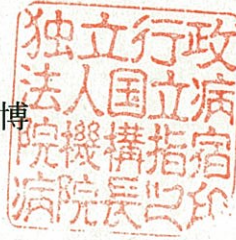 博
独立行政
法人国立病
院機構指宿
病院長之印